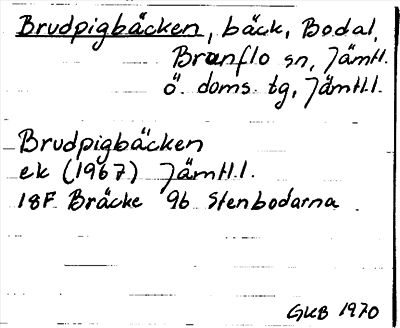 Brudpigbäcken, bäck, Bodal,
Brunflo sn, Jämtl.
ö. doms. tg, Jämtl.l.
Brudpigbäcken
ek (1967) Jämtl.l.
18F Bräcke 9b Stenbodarna
GKB 1970